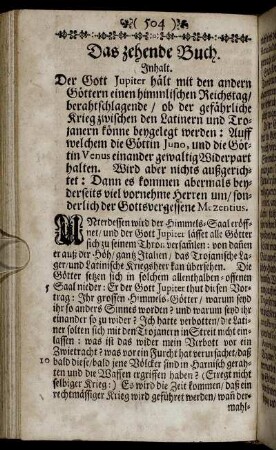 ( 504 )
Das zehende Buch.
Inhalt.
Der Gott Jupiter hält mit den andern
Göttern einen himmlischen Reichstag/
berahtschlagende / ob der gefährliche
Krieg zwischen den Latinern und Tro-
janern könne beygelegt werden: Auff
welchem die Göttin Juno, und die Göt-
tin Venus einander gewaltig Widerpart
halten. Wird aber nichts außgerich-
tet: Dann es kommen abermals bey-
derseits viel vornehme Herren um/son-
derlich der Gottsvergessene Mezentius.
UNterdessen wird der Himmels-Saal eröff-
net/und der Gott Jupiter lässet alle Götter
sich zu seinem Thron versamlen: von dañen er
er auß der Höh/ gantz Italien/ das Trojanische La-
ger/und Latinische Kriegsheer kan übersehen. Die
Götter setzen sich in solchem allenthalben-offenen
5 Saal nieder: Er der Gott Jupiter thut disen Vor-
trag: Ihr grossen Himmels-Götter/ warum seyd
ihr so anders Sinnes worden? und warum seyd ihr
einander so zu wider? Ich hatte verbotten/die Lati-
ner solten sich mit den Trojanern in Streit nicht ein-
lassen: was ist das wider mein Verbott vor ein
Zwietracht? was vor ein Furcht hat verursachet/daß
10 bald diese/bald jene Völcker sind in Harnisch gerah-
ten und die Waffen ergriffen haben? (Erregt nicht
selbiger Krieg:) Es wird die Zeit kommen/ daß ein
rechtmässiger Krieg wird geführet werden/ wañ der-
mahl-